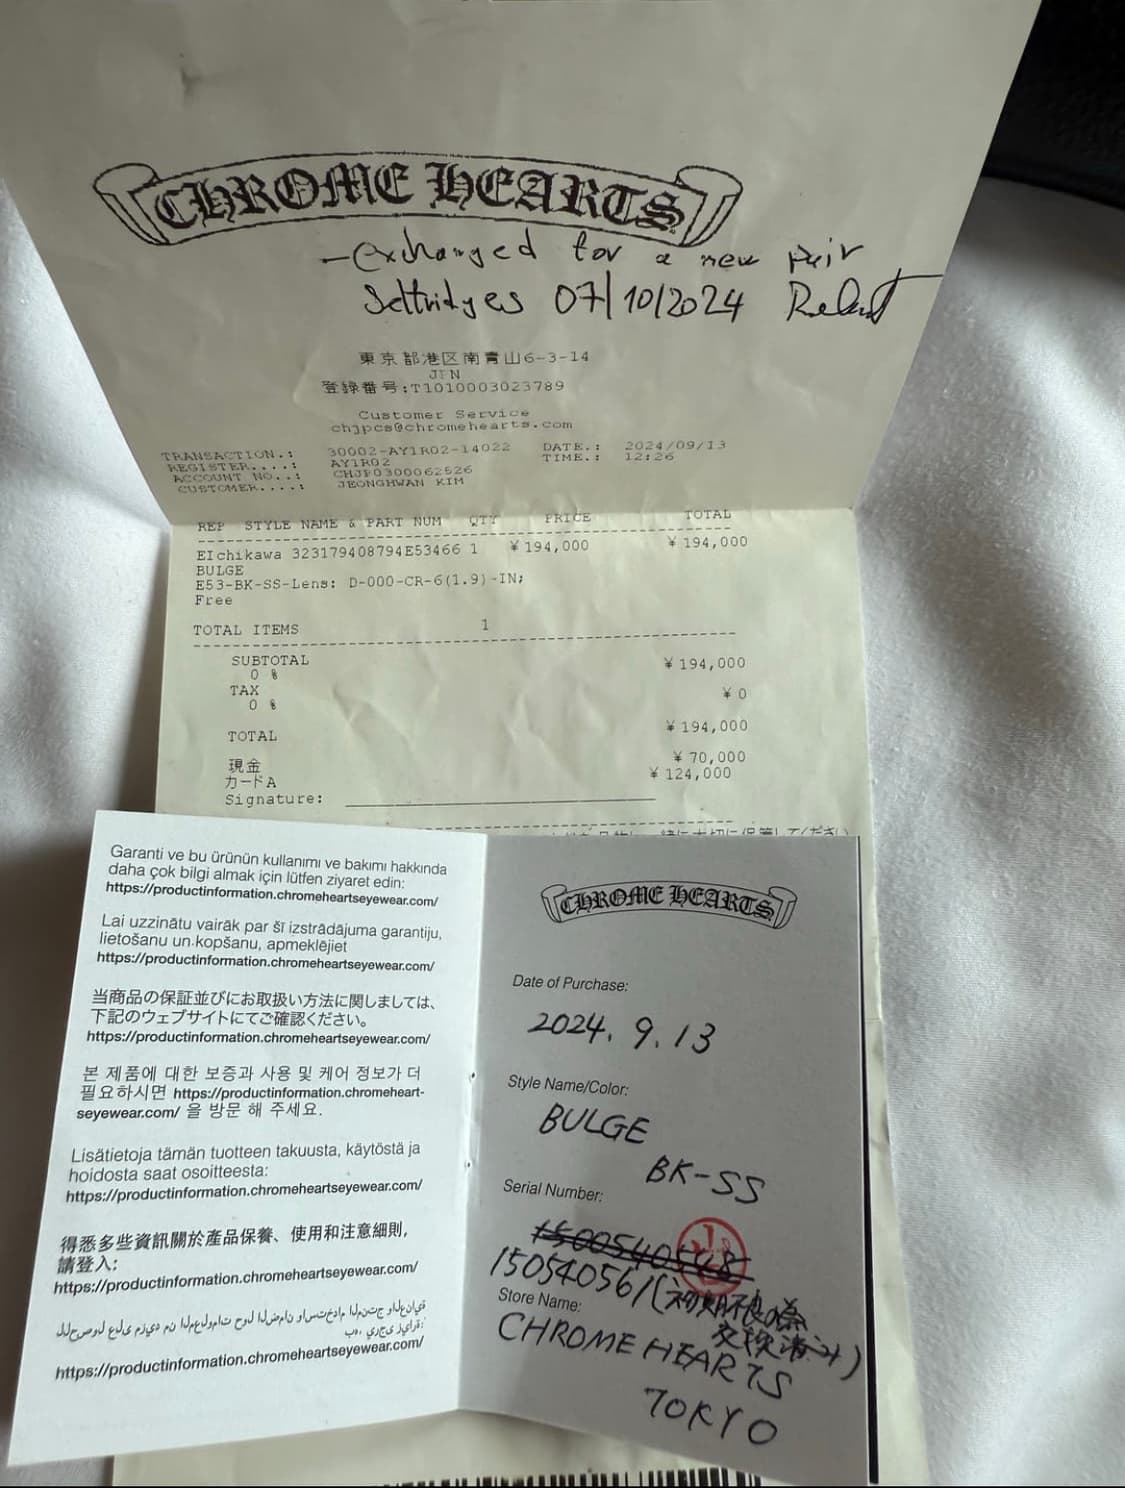 CHROME HEARTS
-exchanged for a new pair
Selfridges 07/10/2024
東京都港区南青山6-3-14
JPN
登録番号:T1010003023789
Customer Service
chjpcs@chromehearts.com
TRANSACTION.: 30002-AY1R02-14022 DATE.: 2024/09/13
REGISTER....: AY1R02 TIME.: 12:26
ACCOUNT NO..: CHJP0300062526
CUSTOMER....: JEONGHWAN KIM
REP STYLE NAME & PART NUM QTY PRICE TOTAL
EIchikawa 323179408794E53466 1 ¥194,000 ¥194,000
BULGE
E53-BK-SS-Lens: D-000-CR-6(1.9)-IN;
Free
TOTAL ITEMS 1
SUBTOTAL ¥194,000
0 %
TAX ¥0
0 %
TOTAL ¥194,000
現金 ¥70,000
カードA ¥124,000
Signature:
緒に大切に保管してください
Garanti ve bu ürünün kullanımı ve bakımı hakkında
daha çok bilgi almak için lütfen ziyaret edin:
https://productinformation.chromeheartseyewear.com/
Lai uzzinātu vairāk par šī izstrādājuma garantiju,
lietošanu un kopšanu, apmeklējiet
https://productinformation.chromeheartseyewear.com/
当商品の保証並びにお取扱い方法に関しましては、
下記のウェブサイトにてご確認ください。
https://productinformation.chromeheartseyewear.com/
본 제품에 대한 보증과 사용 및 케어 정보가 더
필요하시면 https://productinformation.chromeheart-
seyewear.com/ 을 방문 해 주세요.
Lisätietoja tämän tuotteen takuusta, käytöstä ja
hoidosta saat osoitteesta:
https://productinformation.chromeheartseyewear.com/
得悉多些資訊關於產品保養、使用和注意細則,
請登入:
https://productinformation.chromeheartseyewear.com/
للحصول على مزيد من المعلومات حول الضمان واستخدام المنتج والعناية
به، يرجى زيارة:
https://productinformation.chromeheartseyewear.com/
CHROME HEARTS
Date of Purchase:
2024. 9. 13
Style Name/Color:
BULGE
BK-SS
Serial Number:
1500540548
150540561(初期不良の為
交換済み)
Store Name:
CHROME HEARTS
TOKYO